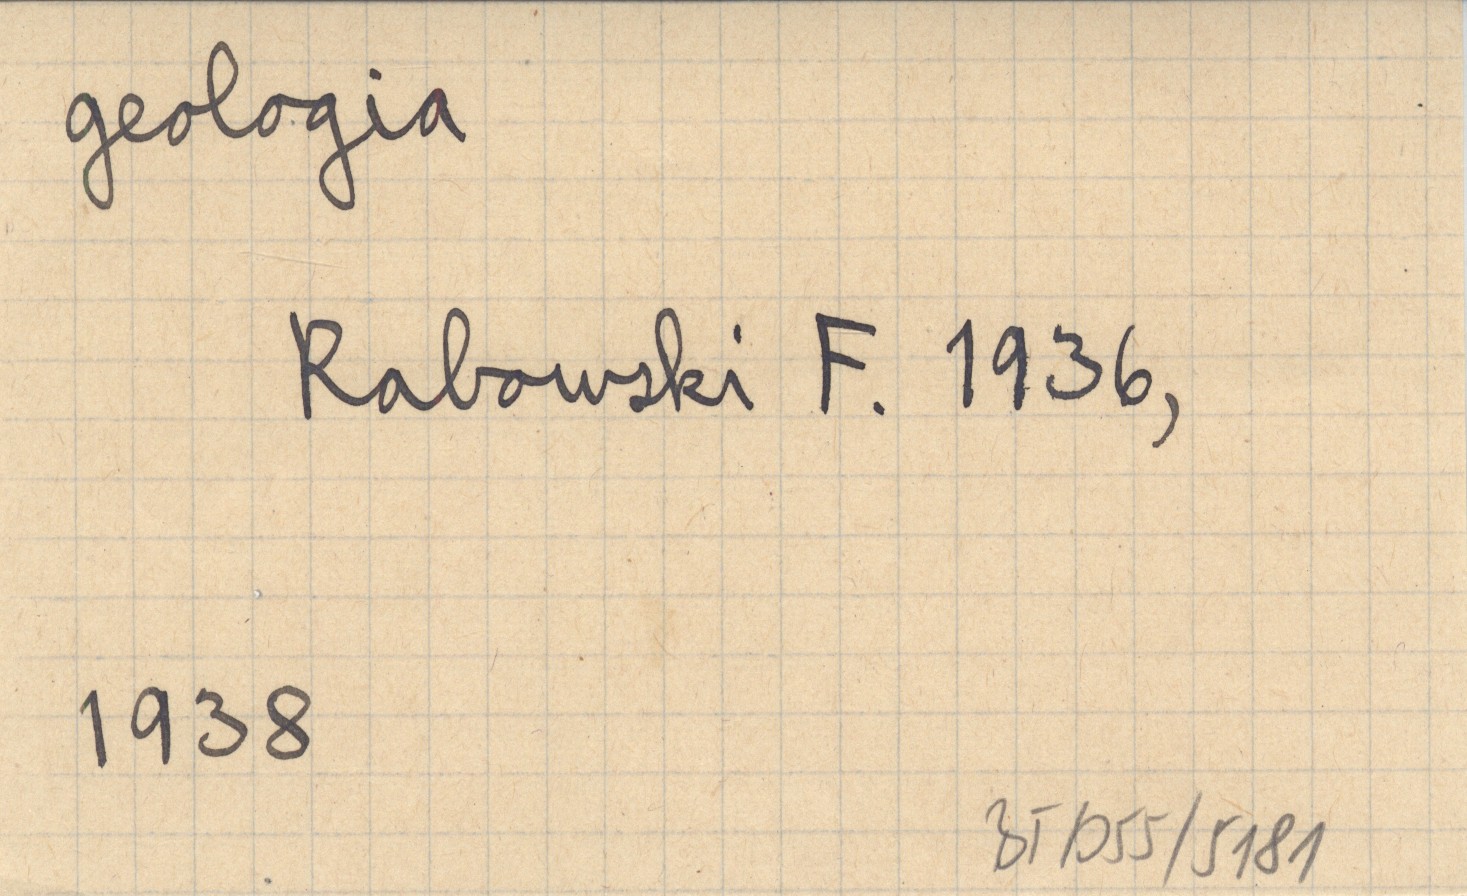 geologia
Rabowski F. 1936,
1938
BT/D55/5181